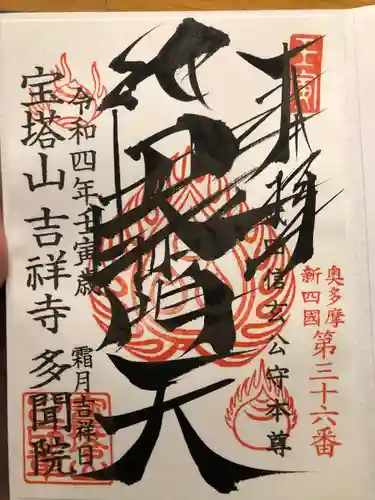 壬寅
奉拝
奥多摩
新四國
第三十六番
武田信玄公守本尊
毘沙門天
令和四年壬寅歳 霜月吉祥日
宝塔山 吉祥寺 多聞院